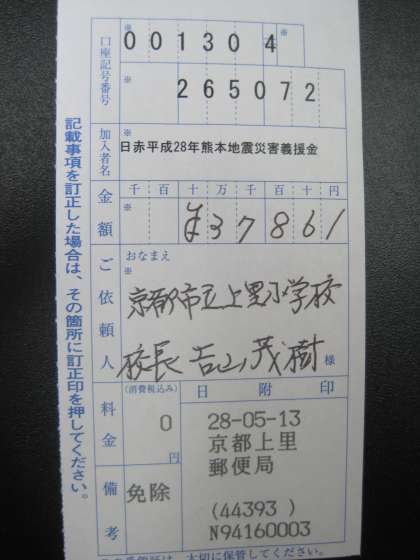 口座記号番号
※
00130 4
※
※
265072
加入者名
※
日赤平成28年熊本地震災害義援金
金額
千百十万千百十円
※
¥37861
ご依頼人
おなまえ
※
京都市立上里小学校
校長 吉山茂樹 様
料金
(消費税込み)
0
円
備考
免除
日附印
28-05-13
京都上里
郵便局
(44393 )
N94160003
記載事項を訂正した場合は、その箇所に訂正印を押してください。
大切に保管してください。